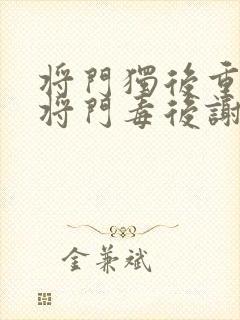 將門獨後重
將門毒後謝
金兼斌